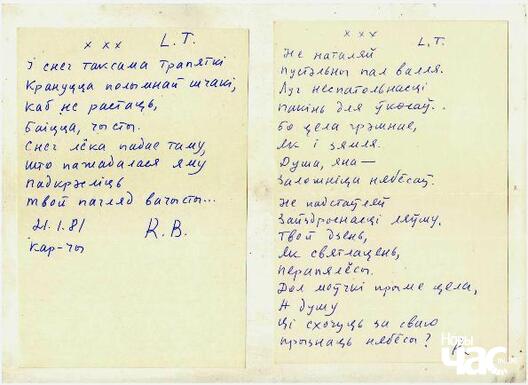 x x x
L.T.
І снег таксама трапяткі
Крануцца полымнай шчакі,
каб не растаць,
баіцца, чысты.
Снег лёка падае таму,
што пажадалася яму
падкрэсліць
твой пагляд вачысты...
21.1.81
Кар-чы
R.B.
x x x
L.T.
Не наталяй
пустэльны пал валля.
Луг неспатольнасці
пакінь для ўкосаў..
Бо цела грэшнае,
як і зямля.
Душа, яна —
заложніца нябёсаў.
Не падстаўляй
зайздроснасці ляўму.
Твой дзень,
як святлацень,
перапялёсы.
Дол моўчкі прыме цела,
А душу
ці схочуць за сваю
прызнаць нябёсы?
Новы
час